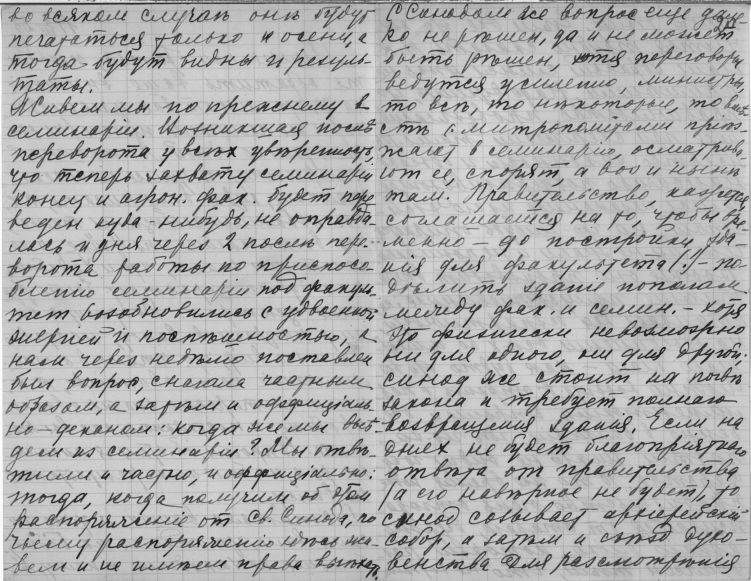 во всяком случаѣ онѣ будут
печататься только к осени, а
тогда будут видны и резуль-
таты.
Живем мы по прежнему в
семинаріи. Возникшая послѣ
переворота у всѣх увѣренность,
что теперь захвату семинаріи
конец и агрон. фак. будет пере
веден куда-нибудь, не оправда-
лась и дня через 2 послѣ пере-
ворота работы по приспосо-
бленію семинаріи под факуль-
тет возобновились с удвоенной
энергіей и поспѣшностью, а
нам через недѣлю поставлен
был вопрос, сначала частным
образом, а затѣм и оффиціаль-
но - деканом: когда же мы выѣ
дем из семинаріи? Мы отвѣ-
тили и частно, и оффиціально:
тогда, когда получим об этом
распоряженіе от Св. Синода, по
чьему распоряженію здѣсь жи-
вем и не имѣем права выѣхать.
С Синодом же вопрос еще дале
ко не рѣшен, да и не может
быть рѣшен, хотя переговоры
ведутся усиленно, министры,
то всѣ, то нѣкоторые, то вмѣ
стѣ с митрополитами пріѣз-
жают в семинарію, осматрива
ют ее, спорят, а воз и нынѣ
там. Правительство, кажется,
соглашается на то, чтобы вре-
менно - до постройки зда-
нія для факультета (!) - по-
дѣлить зданіе пополам
между фак. и семин. - хотя
это физически невозможно
ни для одного, ни для другой.
Синод же стоит на почвѣ
закона и требует полнаго
возвращенія зданія. Если на
днях не будет благопріятнаго
отвѣта от правительства
(а его навѣрное не будет), то
синод созывает архіерейскій
собор, а затѣм и съѣзд духо-
венства для разсмотрѣнія